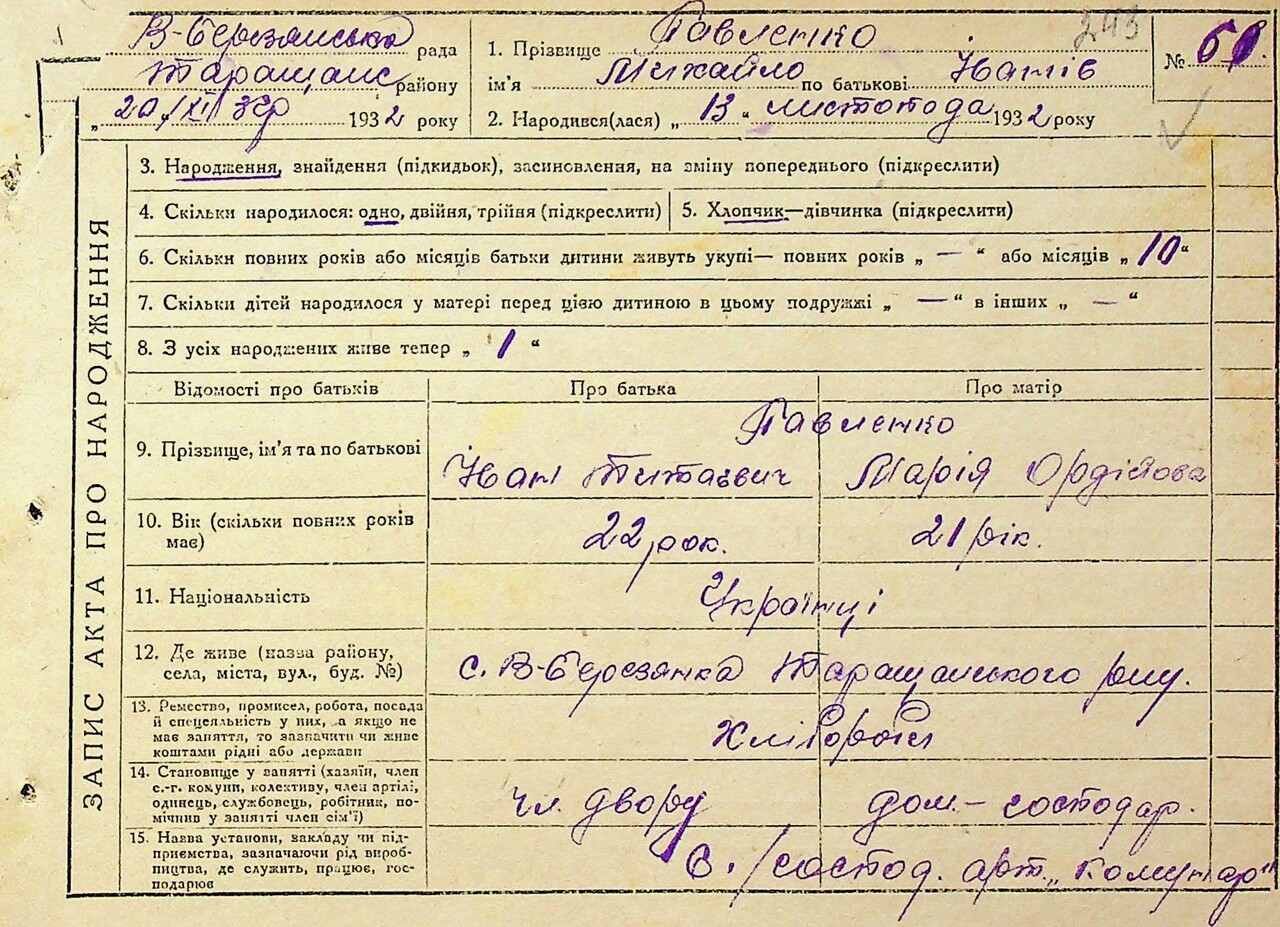 243
В-Березянська рада
Таращанс. району
„20„ XI зар 1932 року
1. Прізвище Павленко
ім'я Михайло по батькові Іванів
2. Народився(лася) „13“ листопода 1932 року
№
ЗАПИС АКТА ПРО НАРОДЖЕННЯ
3. Народження, знайдення (підкидьок), засиновлення, на зміну попереднього (підкреслити)
4. Скільки народилося: одно, двійня, трійня (підкреслити)
5. Хлопчик—дівчинка (підкреслити)
6. Скільки повних років або місяців батьки дитини живуть укупі— повних років „ — “ або місяців „ 10 “
7. Скільки дітей народилося у матері перед цією дитиною в цьому подружжі „ — “ в інших „ — “
8. З усіх народжених живе тепер „ 1 “
Відомості про батьків Про батька Про матір
Павленко
9. Прізвище, ім'я та по батькові Іван Титаєвич Марія
10. Вік (скільки повних років 22 рок. 21 рік.
має)
11. Національність Українці
12. Де живе (назва району, с. В-Березянка Таращанського р-ну.
села, міста, вул., буд. №)
13. Ремество, промисел, робота, посада
й спецсяльність у них, а якщо не
має заняття, то зазначити чи живе Хлібороби
коштами рідні або держави
14. Становище у занятті (хазяїн, член
с.-г. комуни, колективу, член артілі,
одинець, службовець, робітник, по- чл. двору дом.-господар.
мічнив у занятті член сім'ї)
15. Назва установи, закладу чи під-
приємства, зазначаючи рід вироб- С./господ. арт. „Комунар“
ництва, де служить, працює, гос-
подарює